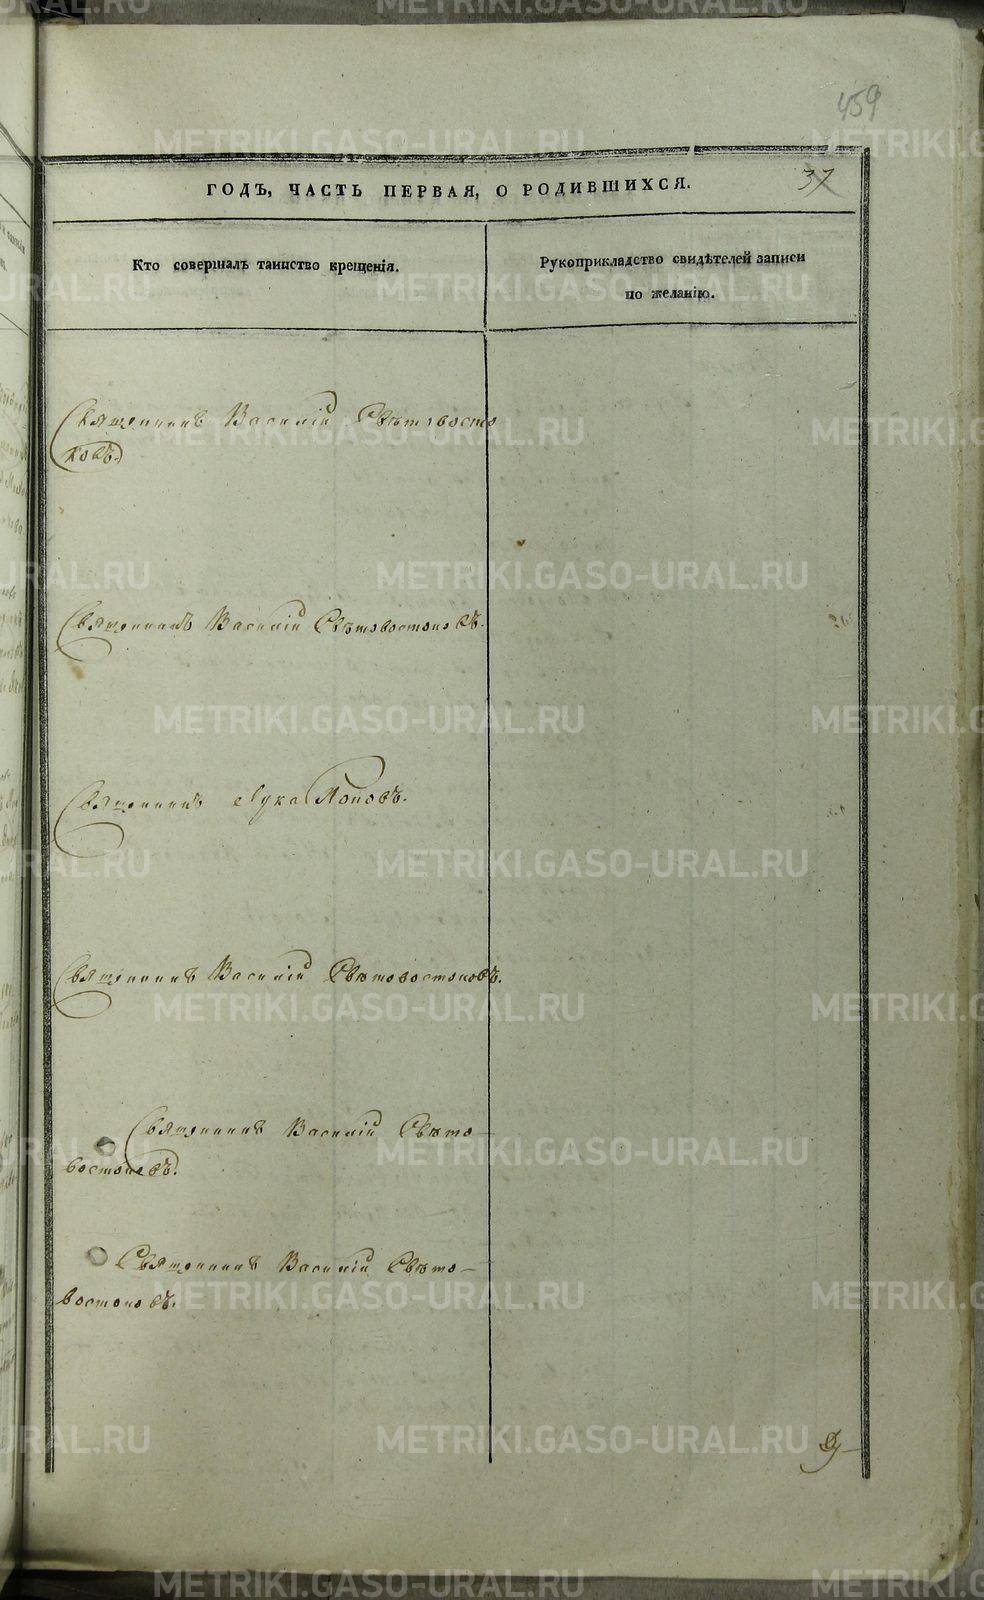 459
ГОДЪ, ЧАСТЬ ПЕРВАЯ, О РОДИВШИХСЯ.
37
Кто совершалъ таинство крещенія.
Рукоприкладство свидѣтелей записи
по желанію.
Священникъ Василій Свѣтовосто
ковъ.
Священникъ Василій Свѣтовостоковъ.
Священникъ Лука Поповъ.
Священникъ Василій Свѣтовостоковъ.
Священникъ Василій Свѣто
востоковъ.
Священникъ Василій Свѣто-
востоковъ.
METRIKI.GASO-URAL.RU